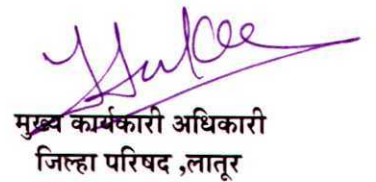 मुख्य कार्यकारी अधिकारी
जिल्हा परिषद ,लातूर